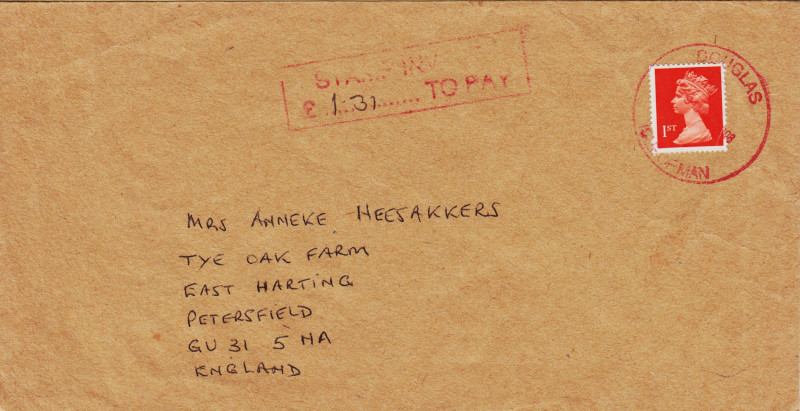 £ 1.31 TO PAY
DOUGLAS
1ST
MAN
MRS ANNEKE HEESAKKERS
TYE OAK FARM
EAST HARTING
PETERSFIELD
GU 31 5 NA
ENGLAND